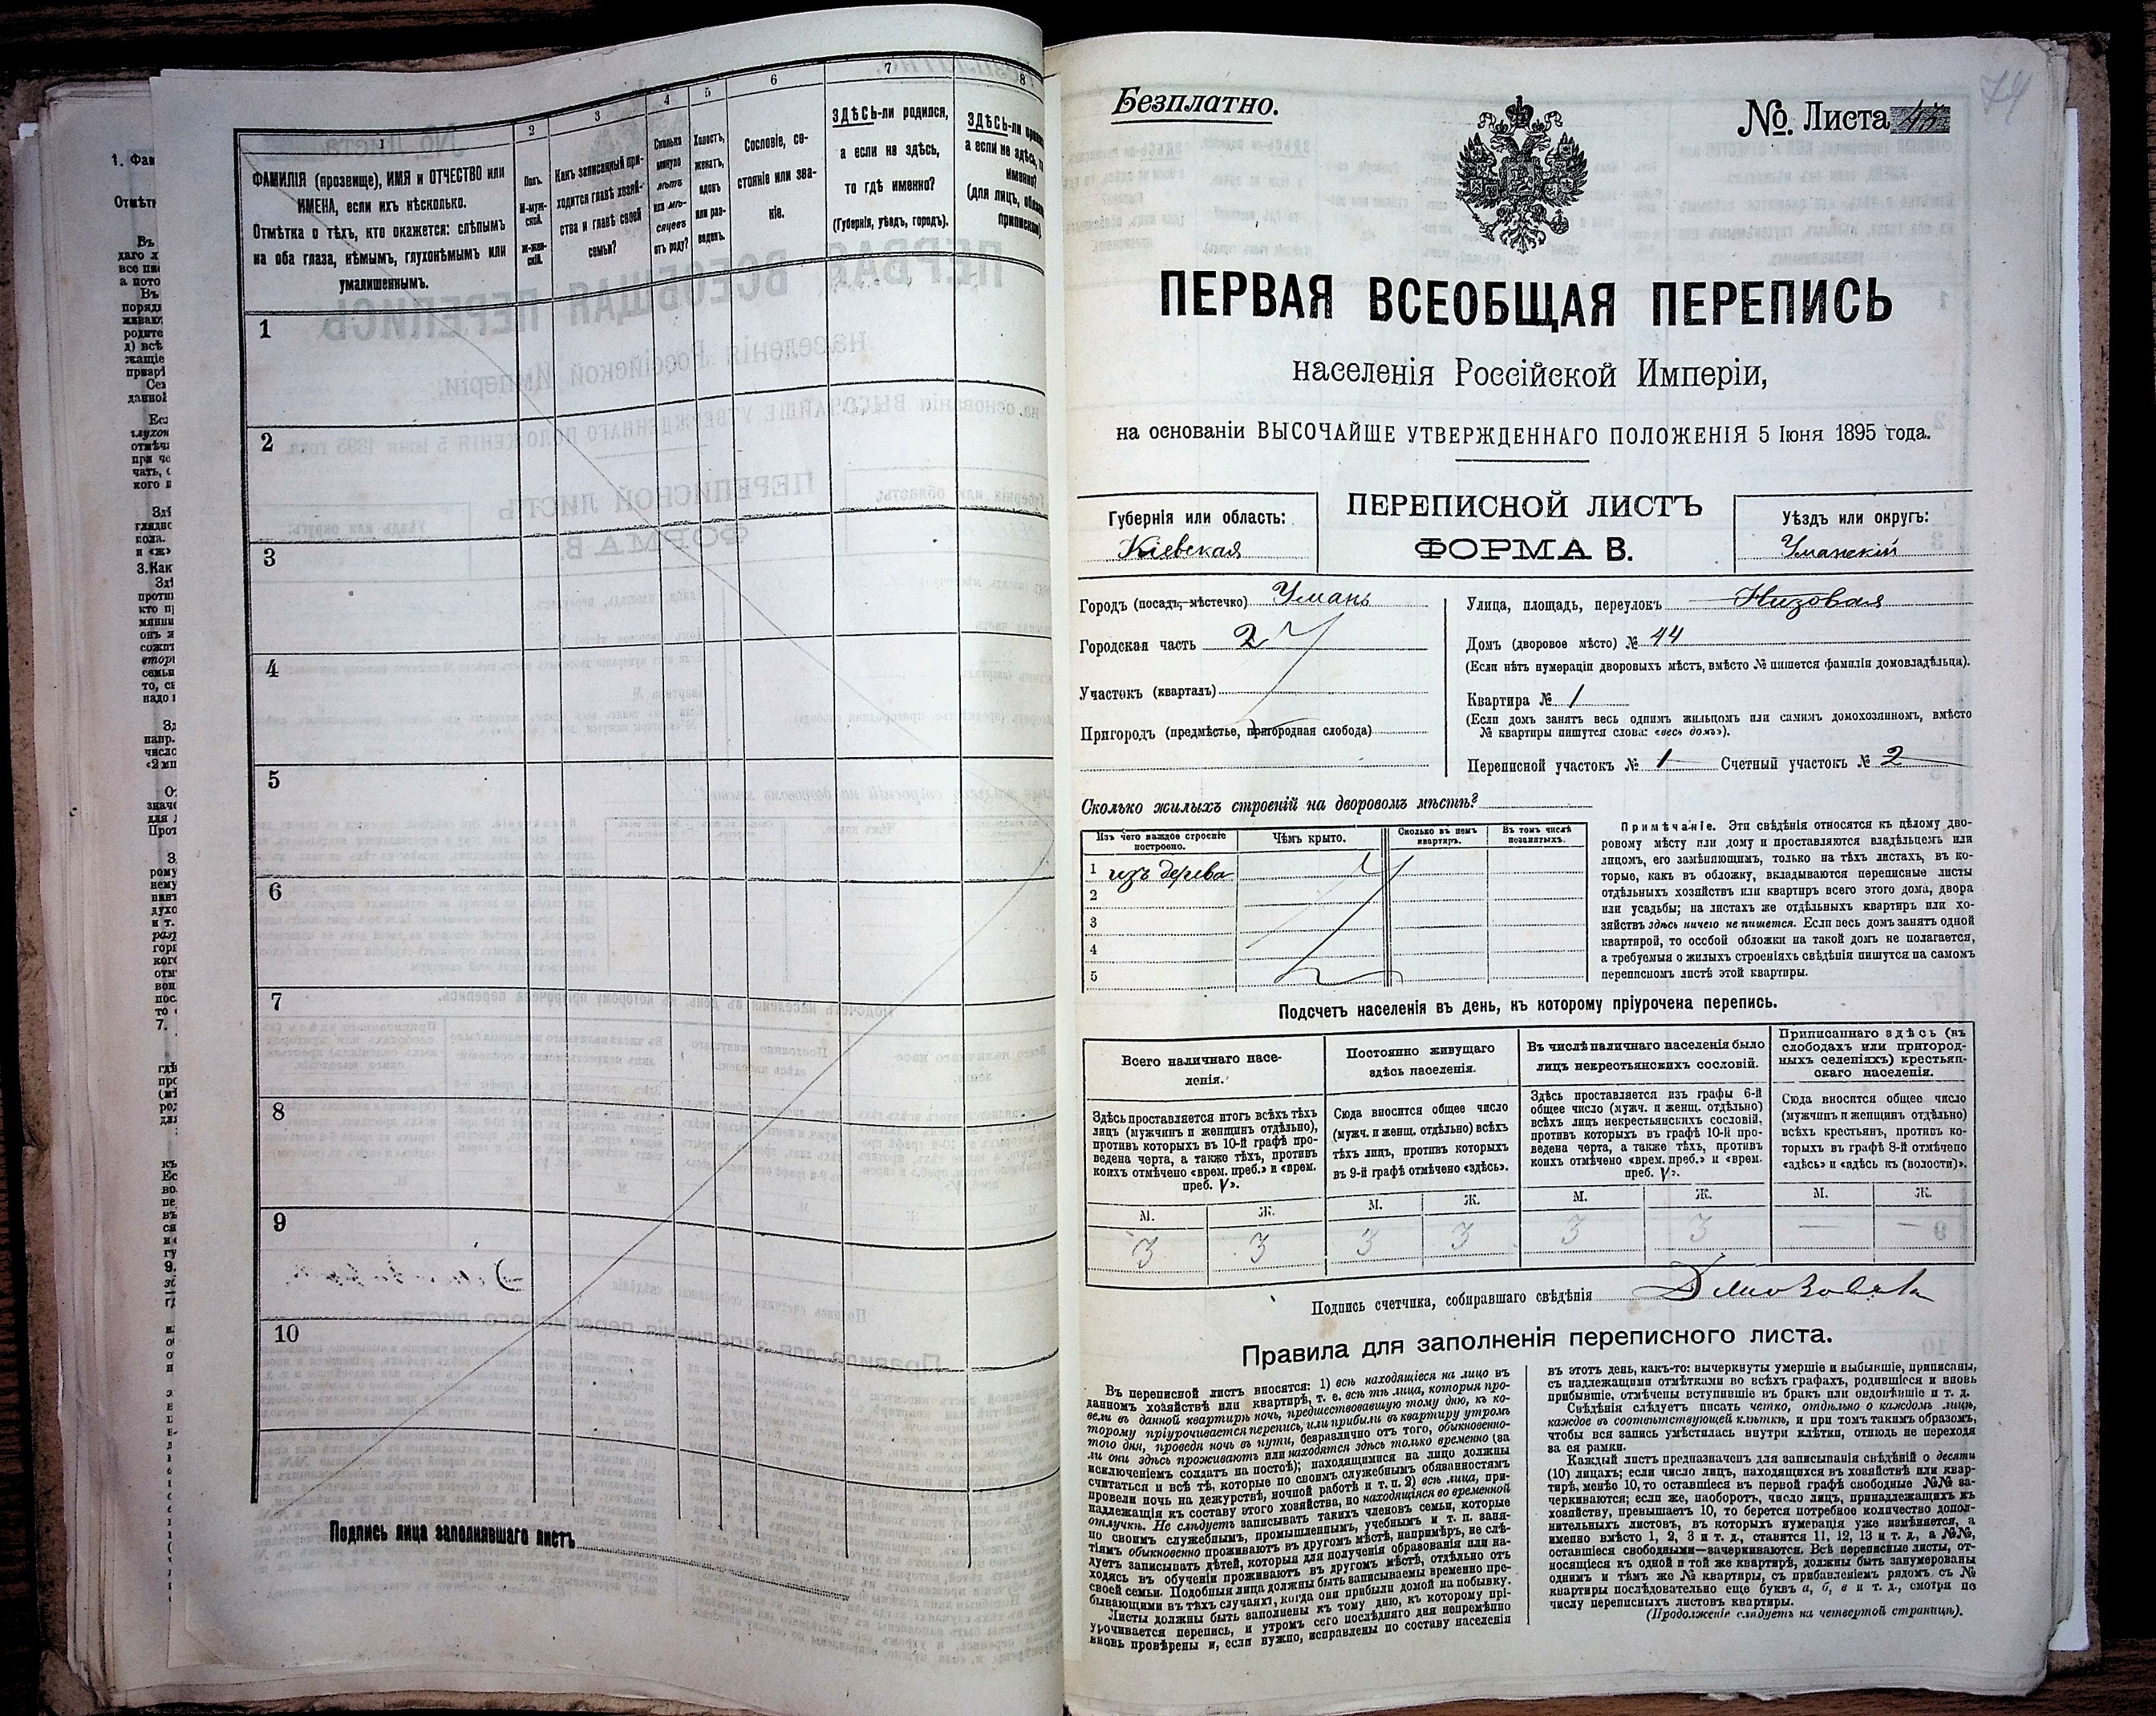 1
ФАМИЛІЯ (прозвище), ИМЯ и ОТЧЕСТВО или
ИМЕНА, если ихъ нѣсколько.
Отмѣтка о тѣхъ, кто окажется: слѣпымъ
на оба глаза, нѣмымъ, глухонѣмымъ или
умалишеннымъ.
2
Полъ.
М-муж-
ской.
Ж-жен-
скій.
3
Какъ записанный при-
ходится главѣ хозяй-
ства и главѣ своей
семьи?
4
Сколько
минуло
лѣтъ
или мѣ-
сяцевъ
отъ роду?
5
Холостъ,
женатъ,
вдовъ
или раз-
веденъ.
6
Сословіе, со-
стояніе или зва-
ніе.
7
ЗДѢСЬ-ли родился,
а если не здѣсь,
то гдѣ именно?
(Губернія, уѣздъ, городъ).
8
ЗДѢСЬ-ли
а если не здѣсь,
именно?
(для лицъ,
1
2
3
4
5
6
7
8
9
10
Подпись лица заполнявшаго листъ
Безплатно.
№ Листа
74
ПЕРВАЯ ВСЕОБЩАЯ ПЕРЕПИСЬ
населенія Россійской Имперіи,
на основаніи ВЫСОЧАЙШЕ УТВЕРЖДЕННАГО ПОЛОЖЕНІЯ 5 Іюня 1895 года.
Губернія или область:
Кіевская
ПЕРЕПИСНОЙ ЛИСТЪ
ФОРМА В.
Уѣздъ или округъ:
Уманскій
Городъ (посадъ, мѣстечко) Умань
Городская часть 2
Участокъ (кварталъ)
Пригородъ (предмѣстье, пригородная слобода)
Улица, площадь, переулокъ Низовая
Домъ (дворовое мѣсто) № 44
(Если нѣтъ нумераціи дворовыхъ мѣстъ, вмѣсто № пишется фамилія домовладѣльца).
Квартира № 1
(Если домъ занятъ весь однимъ жильцомъ или самимъ домохозяиномъ, вмѣсто
№ квартиры пишутся слова: «весь домъ»).
Переписной участокъ № 1 Счетный участокъ № 2
Сколько жилыхъ строеній на дворовомъ мѣстѣ?
Изъ чего каждое строеніе
построено.
Чѣмъ крыто.
Сколько въ немъ
квартиръ.
Въ томъ числѣ
незанятыхъ.
1 изъ дерева
2
3
4
5
Примѣчаніе. Эти свѣдѣнія относятся къ цѣлому дво-
ровому мѣсту или дому и проставляются владѣльцемъ или
лицомъ, его замѣняющимъ, только на тѣхъ листахъ, въ ко-
торые, какъ въ обложку, вкладываются переписные листы
отдѣльныхъ хозяйствъ или квартиръ всего этого дома, двора
или усадьбы; на листахъ же отдѣльныхъ квартиръ или хо-
зяйствъ здѣсь ничего не пишется. Если весь домъ занятъ одной
квартирой, то особой обложки на такой домъ не полагается,
а требуемыя о жилыхъ строеніяхъ свѣдѣнія пишутся на самомъ
переписномъ листѣ этой квартиры.
Подсчетъ населенія въ день, къ которому пріурочена перепись.
Всего наличнаго насе-
ленія.
Здѣсь проставляется итогъ всѣхъ тѣхъ
лицъ (мужчинъ и женщинъ отдѣльно),
противъ которыхъ въ 10-й графѣ про-
ведена черта, а также тѣхъ, противъ
коихъ отмѣчено «врем. преб.» и «врем.
преб. V».
Постоянно живущаго
здѣсь населенія.
Сюда вносится общее число
(мужч. и женщ. отдѣльно) всѣхъ
тѣхъ лицъ, противъ которыхъ
въ 9-й графѣ отмѣчено «здѣсь».
Въ числѣ наличнаго населенія было
лицъ некрестьянскихъ сословій.
Здѣсь проставляется изъ графы 6-й
общее число (мужч. и женщ. отдѣльно)
всѣхъ лицъ некрестьянскихъ сословій,
противъ которыхъ въ графѣ 10-й про-
ведена черта, а также тѣхъ, противъ
коихъ отмѣчено «врем. преб.» и «врем.
преб. V».
Приписаннаго здѣсь (въ
слободахъ или пригород-
ныхъ селеніяхъ) крестьян-
скаго населенія.
Сюда вносится общее число
(мужчинъ и женщинъ отдѣльно)
всѣхъ крестьянъ, противъ ко-
торыхъ въ графѣ 8-й отмѣчено
«здѣсь» и «здѣсь къ (волости)».
М. Ж. М. Ж. М. Ж. М. Ж.
3 3 3 3 3 3 — —
Подпись счетчика, собиравшаго свѣдѣнія
Правила для заполненія переписного листа.
Въ переписной листъ вносятся: 1) всѣ находящіеся на лицо въ
данномъ хозяйствѣ или квартирѣ, т. е. всѣ тѣ лица, которыя про-
вели въ данной квартирѣ ночь, предшествовавшую тому дню, къ ко-
торому пріурочивается перепись, или прибыли въ квартиру утромъ
того дня, проведя ночь въ пути, безразлично отъ того, обыкновенно-
ли они здѣсь проживаютъ или находятся здѣсь только временно (за
исключеніемъ солдатъ на постоѣ); находящимися на лицо должны
считаться и всѣ тѣ, которые по своимъ служебнымъ обязанностямъ
провели ночь на дежурствѣ, ночной работѣ и т. п. 2) всѣ лица, при-
надлежащія къ составу этого хозяйства, но находящіяся во временной
отлучкѣ. Не слѣдуетъ записывать такихъ членовъ семьи, которые
по своимъ служебнымъ, промышленнымъ, учебнымъ и т. п. заня-
тіямъ обыкновенно проживаютъ въ другомъ мѣстѣ, напримѣръ, не слѣ-
дуетъ записывать дѣтей, которыя для полученія образованія или на-
ходясь въ обученіи проживаютъ въ другомъ мѣстѣ, отдѣльно отъ
своей семьи. Подобныя лица должны быть записываемы временно пре-
бывающими въ тѣхъ случаяхъ, когда они прибыли домой на побывку.
Листы должны быть заполнены къ тому дню, къ которому прі-
урочивается перепись, и утромъ сего послѣдняго дня непремѣнно
вновь провѣрены и, если нужно, исправлены по составу населенія
въ этотъ день, какъ-то: вычеркнуты умершіе и выбывшіе, приписаны,
съ надлежащими отмѣтками во всѣхъ графахъ, родившіеся и вновь
прибывшіе, отмѣчены вступившіе въ бракъ или овдовѣвшіе и т. д.
Свѣдѣнія слѣдуетъ писать четко, отдѣльно о каждомъ лицѣ,
каждое въ соотвѣтствующей клѣткѣ, и при томъ такимъ образомъ,
чтобы вся запись умѣстилась внутри клѣтки, отнюдь не переходя
за ея рамки.
Каждый листъ предназначенъ для записыванія свѣдѣній о десяти
(10) лицахъ; если число лицъ, находящихся въ хозяйствѣ или квар-
тирѣ, менѣе 10, то оставшіеся въ первой графѣ свободные №№ за-
черкиваются; если же, наоборотъ, число лицъ, принадлежащихъ къ
хозяйству, превышаетъ 10, то берется потребное количество допол-
нительныхъ листовъ, въ которыхъ нумерація уже измѣняется, а
именно вмѣсто 1, 2, 3 и т. д., ставится 11, 12, 13 и т. д., а №№,
оставшіеся свободными—зачеркиваются. Всѣ переписные листы, от-
носящіеся къ одной и той же квартирѣ, должны быть занумерованы
однимъ и тѣмъ же № квартиры, съ прибавленіемъ рядомъ съ №
квартиры послѣдовательно еще буквъ а, б, в и т. д., смотря по
числу переписныхъ листовъ квартиры.
(Продолженіе слѣдуетъ на четвертой страницѣ).